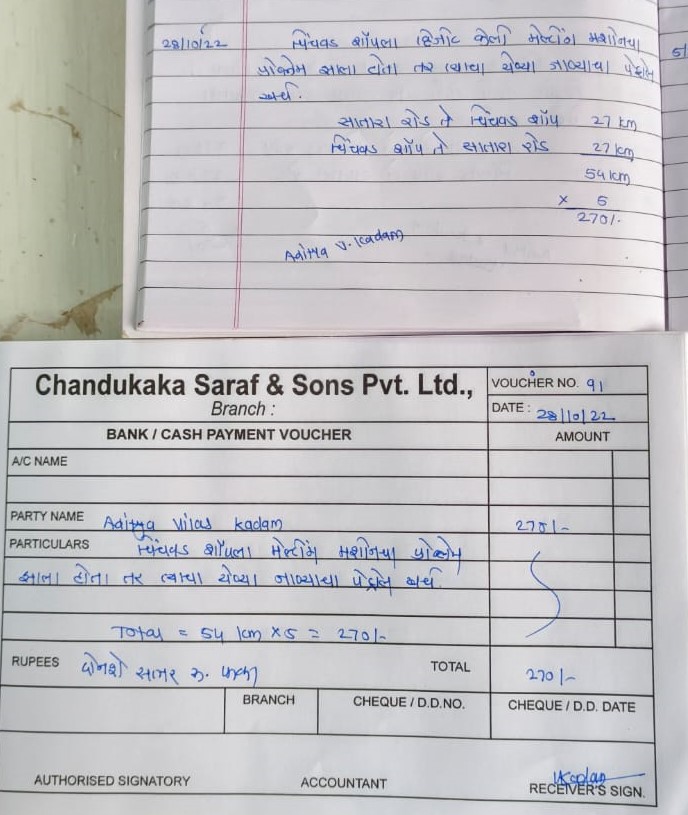 28/10/22 चिंचवड शॉपला व्हिजीट केली मेल्टींग मशीनचा
प्रोब्लेम झाला होता तर त्याचा येण्या जाण्याचा पेट्रोल
खर्च.
सातारा रोड ते चिंचवड शॉप 27 km
चिंचवड शॉप ते सातारा रोड 27 km
54 km
x 5
270/-
Aditya V. Kadam
Chandukaka Saraf & Sons Pvt. Ltd.,
Branch :
VOUCHER NO. 91
DATE : 28/10/22
BANK / CASH PAYMENT VOUCHER
AMOUNT
A/C NAME
PARTY NAME Aditya Vilas Kadam 270/-
PARTICULARS चिंचवड शॉपला मेल्टींग मशीनचा प्रोब्लेम
झाला होता तर त्याचा येण्या जाण्याचा पेट्रोल खर्च.
Total = 54 km x 5 = 270/-
RUPEES दोनशे सत्तर रु. फक्त TOTAL 270/-
BRANCH CHEQUE / D.D.NO. CHEQUE / D.D. DATE
AUTHORISED SIGNATORY ACCOUNTANT RECEIVER'S SIGN.